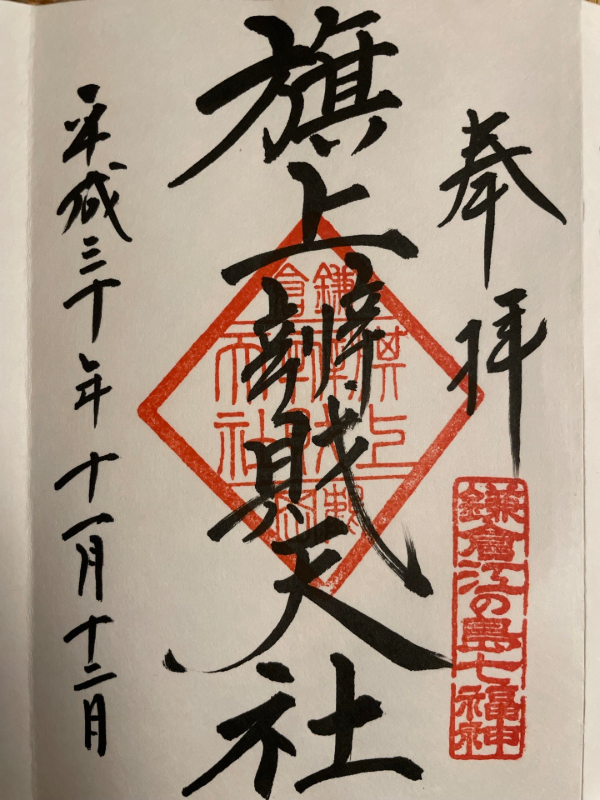 奉拝
鎌倉江の島七福神
旗上辨財天社
鎌倉
平成三十年十一月十二日